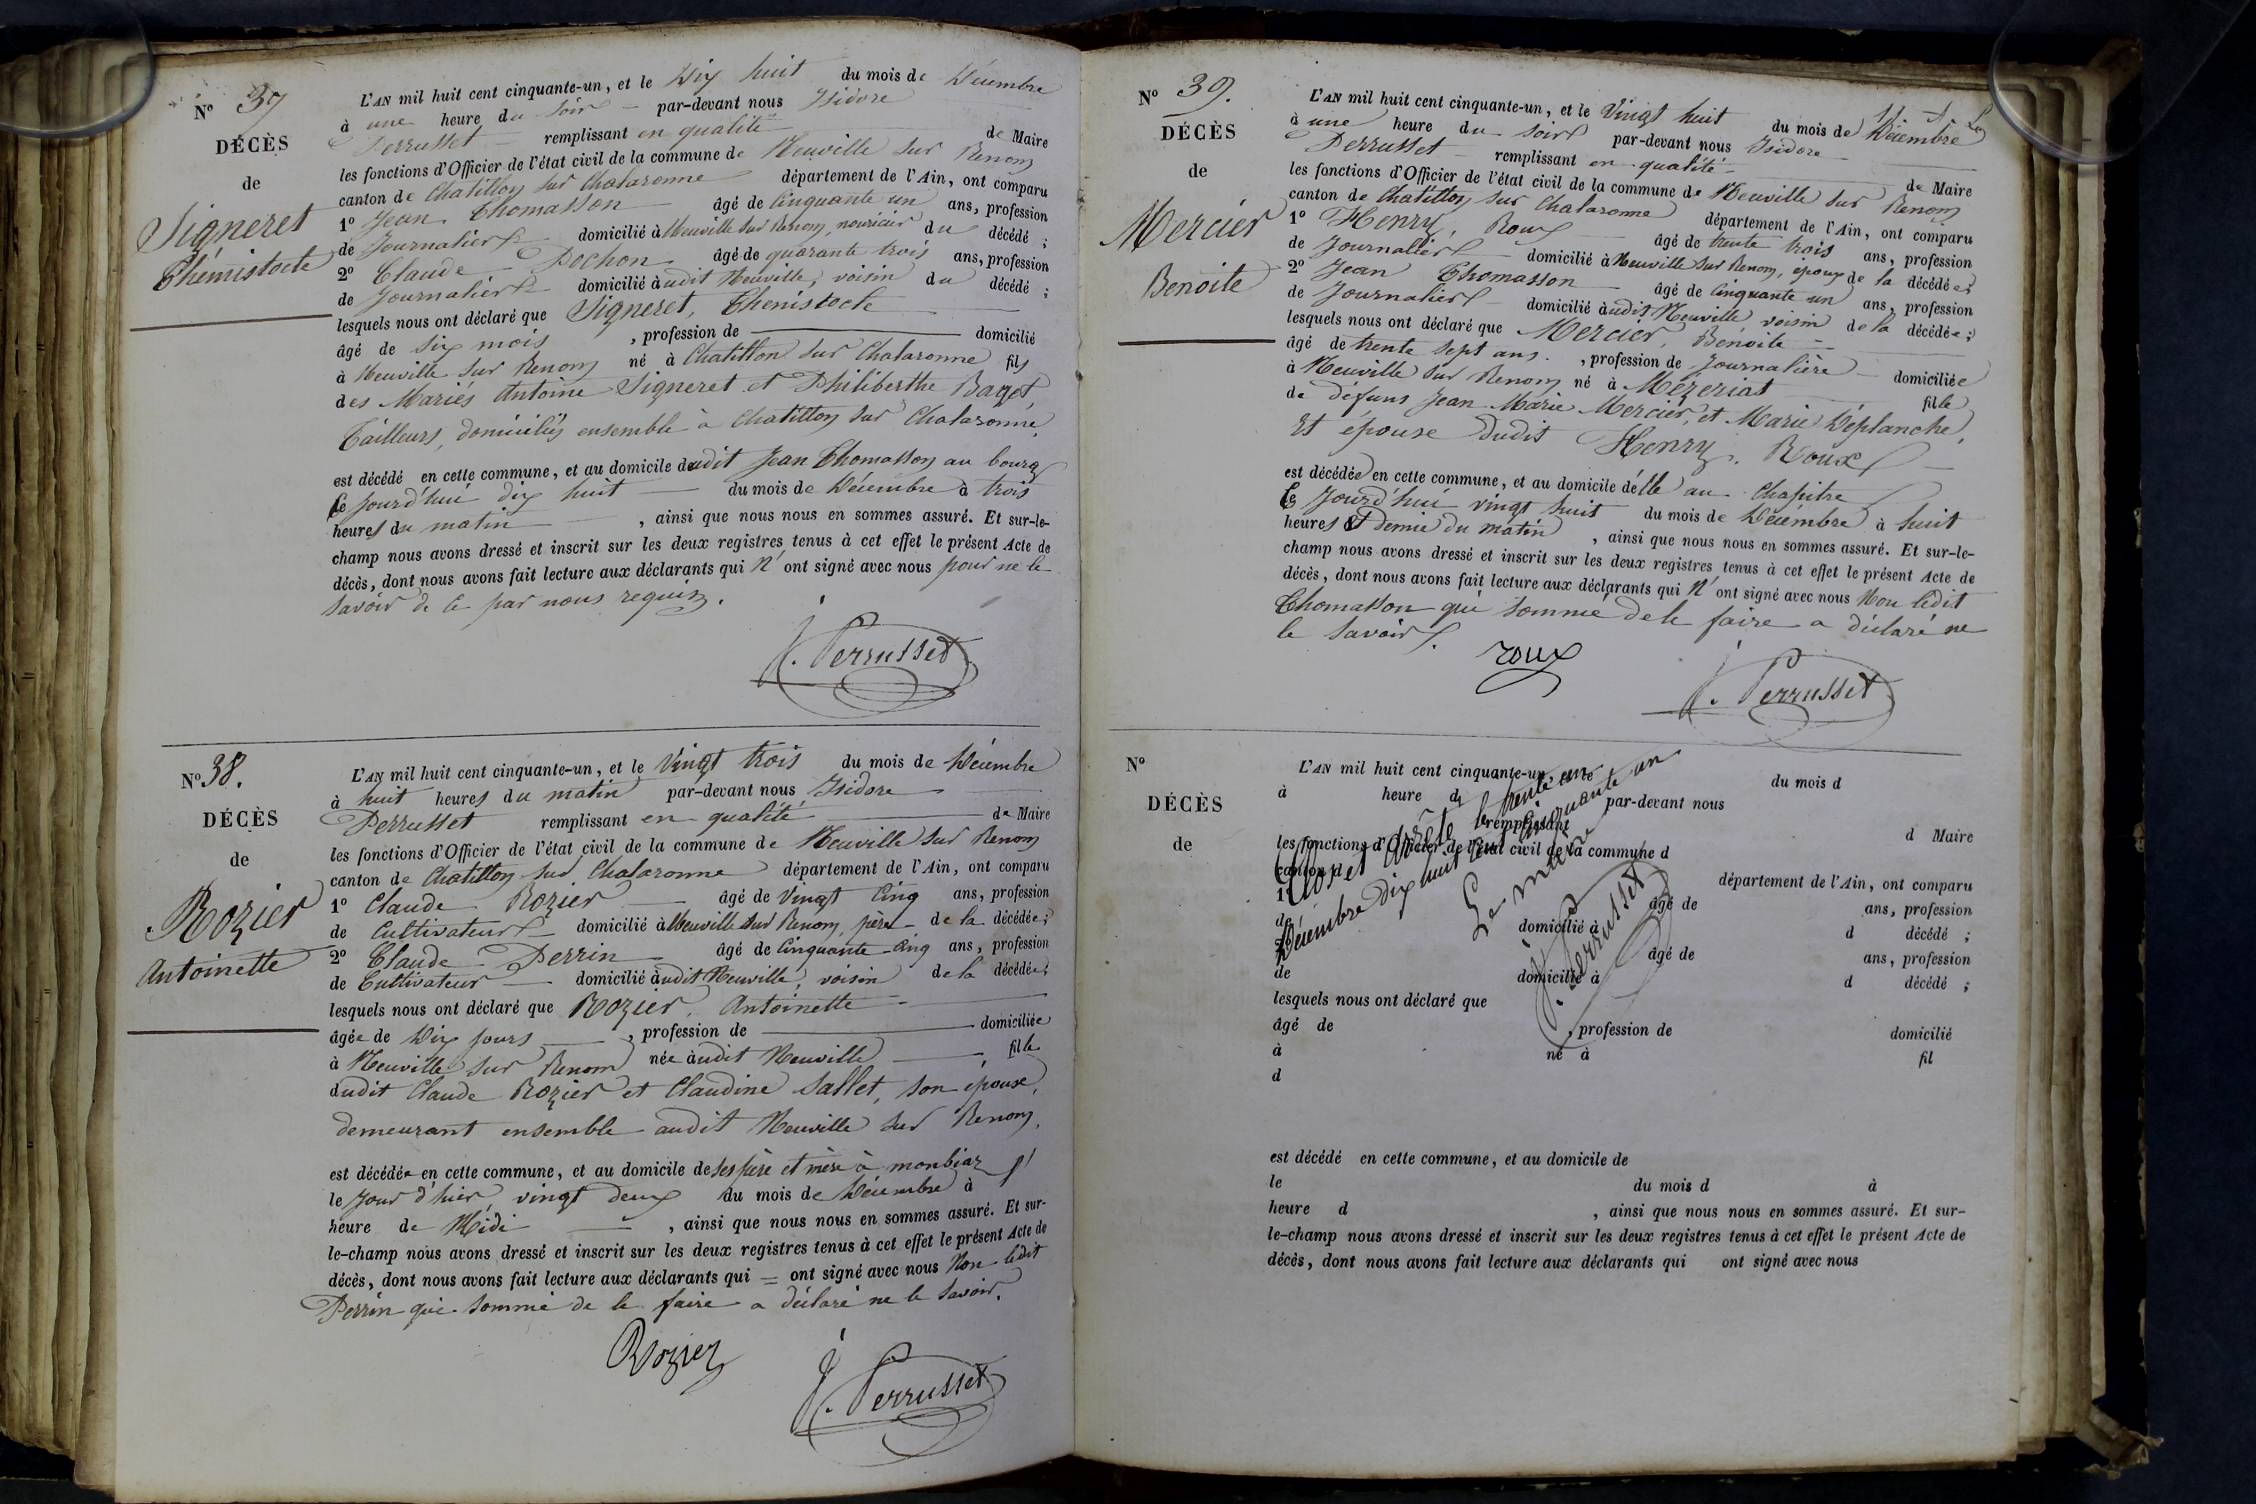 N° 37
DÉCÈS
de
Signeret
Thémistocte
L'AN mil huit cent cinquante-un, et le Dix huit du mois de Décembre
à une heure du soir par-devant nous Isidore
Perrusset remplissant en qualité de Maire
les fonctions d'Officier de l'état civil de la commune de Neuville sur Renom
canton de Chatillon sur Chalaronne département de l'Ain, ont comparu
1° Jean Thomasson âgé de Cinquante un ans, profession
de Journalier domicilié à Neuville sur Renom, nouricier du décédé ;
2° Claude Pochon âgé de quarante trois ans, profession
de Journalier domicilié audit Neuville, voisin du décédé ;
lesquels nous ont déclaré que Signeret, Themistocte
âgé de six mois , profession de domicilié
à Neuville sur Renom né à Chatillon sur Chalaronne fils
des Mariés Antoine Signeret et Philiberthe Bagot,
Tailleurs, domiciliés ensemble à Chatillon sur Chalaronne,
est décédé en cette commune, et au domicile dudit Jean Thomasson au bourg
le jourd'hui dix huit du mois de Décembre à trois
heures du matin , ainsi que nous nous en sommes assuré. Et sur-le-
champ nous avons dressé et inscrit sur les deux registres tenus à cet effet le présent Acte de
décès, dont nous avons fait lecture aux déclarants qui n' ont signé avec nous pour ne le
savoir de ce par nous requis.
J. Perrusset
N° 38.
DÉCÈS
de
Rozier
Antoinette
L'AN mil huit cent cinquante-un, et le Vingt trois du mois de Décembre
à huit heures du matin par-devant nous Isidore
Perrusset remplissant en qualité de Maire
les fonctions d'Officier de l'état civil de la commune de Neuville sur Renom
canton de Chatillon sur Chalaronne département de l'Ain, ont comparu
1° Claude Rozier âgé de Vingt Cinq ans, profession
de Cultivateur domicilié à Neuville sur Renom, père de la décédée ;
2° Claude Perrin âgé de Cinquante Cinq ans, profession
de Cultivateur domicilié audit Neuville, voisin de la décédée ;
lesquels nous ont déclaré que Rozier, Antoinette
âgée de Dix jours , profession de domiciliée
à Neuville sur Renom née audit Neuville fille
dudit Claude Rozier et Claudine Sallet, son épouse,
demeurant ensemble audit Neuville sur Renom,
est décédée en cette commune, et au domicile de ses père et mère à monbéar
le jour d'hier vingt deux du mois de Décembre à
heure de Midi , ainsi que nous nous en sommes assuré. Et sur-
le-champ nous avons dressé et inscrit sur les deux registres tenus à cet effet le présent Acte de
décès, dont nous avons fait lecture aux déclarants qui = ont signé avec nous Non ledit
Perrin qui sommé de le faire a déclaré ne le savoir.
Rozier
J. Perrusset
N° 39.
DÉCÈS
de
Mercier
Benoite
L'AN mil huit cent cinquante-un, et le Vingt huit du mois de Décembre
à une heure du soir par-devant nous Isidore
Perrusset remplissant en qualité de Maire
les fonctions d'Officier de l'état civil de la commune de Neuville sur Renom
canton de Chatillon sur Chalaronne département de l'Ain, ont comparu
1° Henry, Roux âgé de trente trois ans, profession
de Journalier domicilié à Neuville sur Renom, époux de la décédée ;
2° Jean Thomasson âgé de Cinquante un ans, profession
de Journalier domicilié audit Neuville voisin de la décédée ;
lesquels nous ont déclaré que Mercier, Benoite
âgé de trente sept ans. , profession de Journalière domiciliée
à Neuville sur Renom né à Mézeriat fille
de défuns Jean Marie Mercier, et Marie Déplanche,
Et épouse dudit Henry, Roux
est décédée en cette commune, et au domicile d'elle au Chapitre
le jourd'hui vingt huit du mois de Décembre à huit
heures et demie du matin , ainsi que nous nous en sommes assuré. Et sur-le-
champ nous avons dressé et inscrit sur les deux registres tenus à cet effet le présent Acte de
décès, dont nous avons fait lecture aux déclarants qui n' ont signé avec nous Non ledit
Thomasson qui sommé de le faire a déclaré ne
le savoir.
roux
J. Perrusset
N°
DÉCÈS
de
L'AN mil huit cent cinquante-un, et le du mois d
à heure d par-devant nous
remplissant d Maire
les fonctions d'Officier de l'état civil de la commune d
canton d département de l'Ain, ont comparu
1° âgé de ans, profession
de domicilié à d décédé ;
2° âgé de ans, profession
de domicilié à d décédé ;
lesquels nous ont déclaré que
âgé de , profession de domicilié
à né à fil
d
Clos et arrêté le trente un
Décembre dix huit cent cinquante un
Le maire
J. Perrusset
est décédé en cette commune, et au domicile de
le du mois d à
heure d , ainsi que nous nous en sommes assuré. Et sur-
le-champ nous avons dressé et inscrit sur les deux registres tenus à cet effet le présent Acte de
décès, dont nous avons fait lecture aux déclarants qui ont signé avec nous